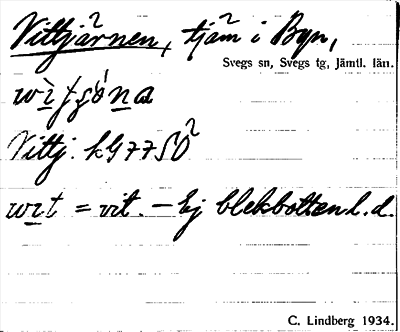 Vittjärnen, tjärn i Byn,
Svegs sn, Svegs tg, Jämtl. län.
Vittj. kG77SO
= vit. – Ej blekbotten l. d.
C. Lindberg 1934.